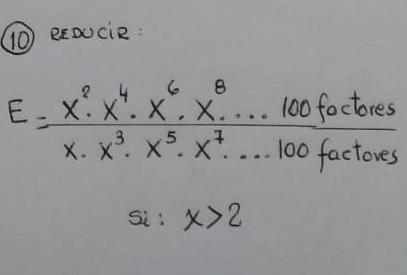 10 REDUCIR:
E = x². x⁴. x⁶. x⁸. ... 100 factores
x. x³. x⁵. x⁷. ... 100 factores
Si: x>2